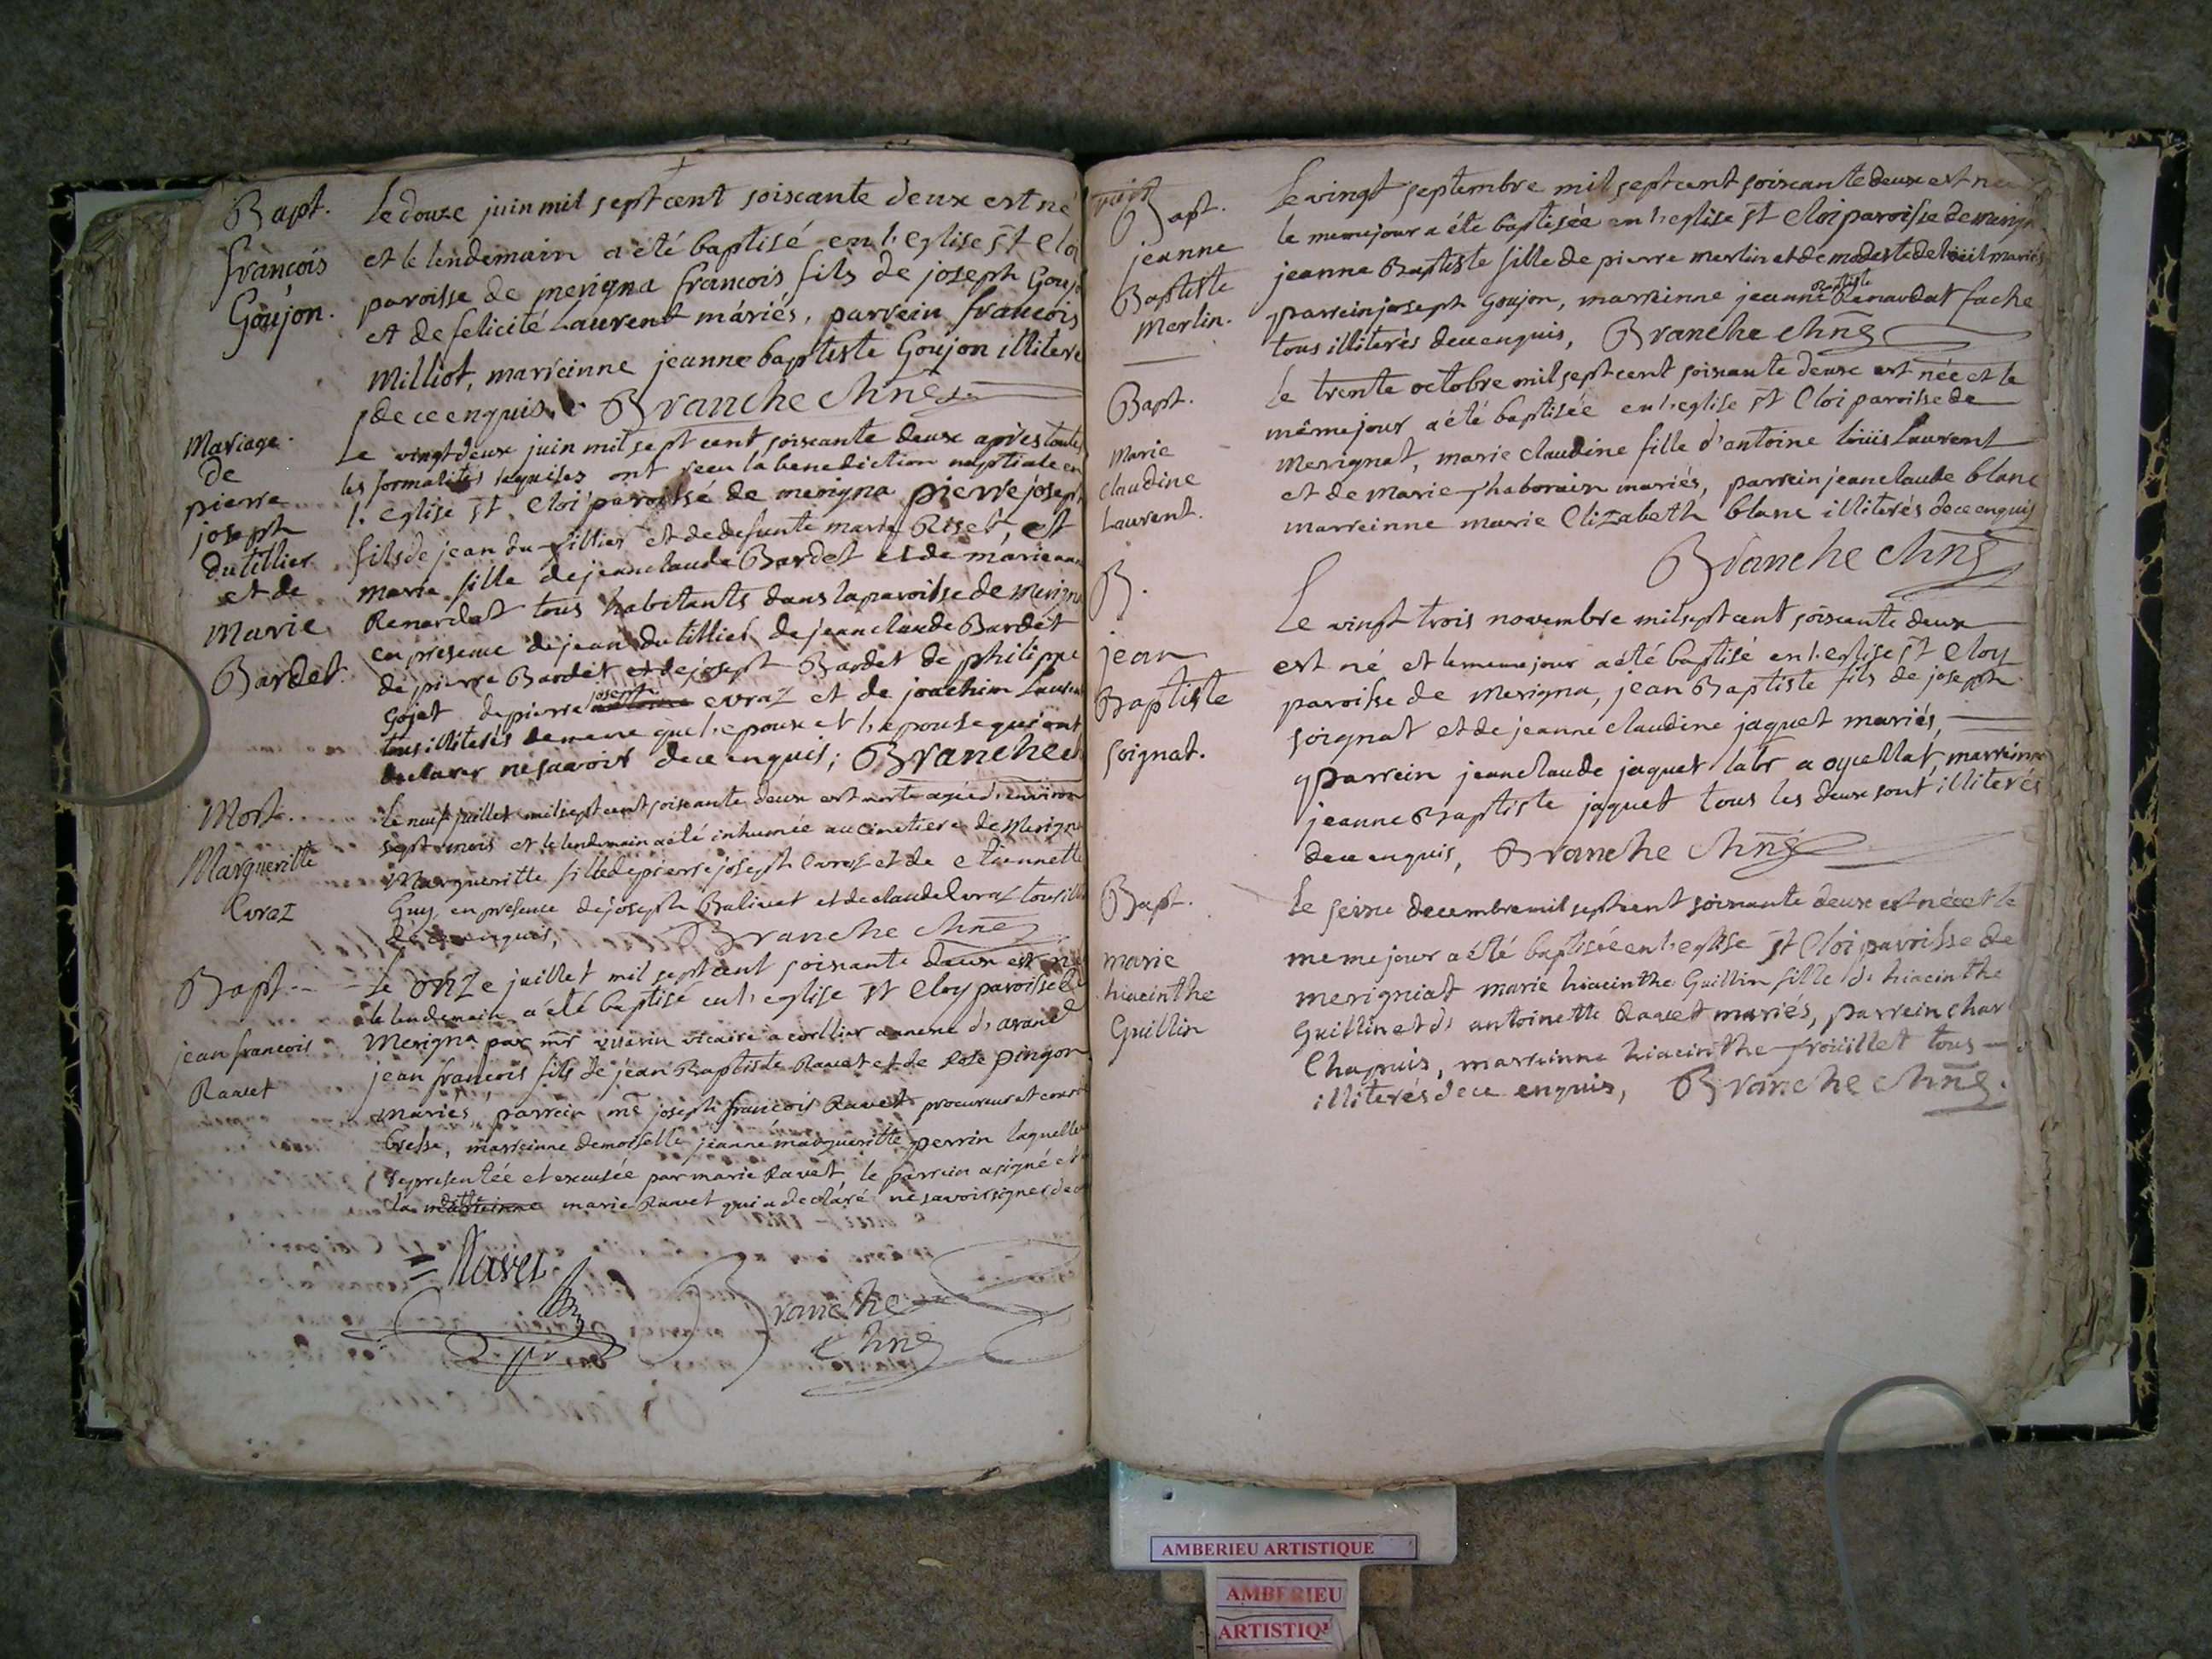 Bapt.
françois
Goujon.
Le douze juin mil sept cent soixante deux est né
et le lendemain a été baptisé en l'eglise St Eloi
paroisse de merigna francois fils de joseph Gouj
et de felicité Laurent máriés, parrein francois
Milliot, marreinne jeanne baptiste Goujon illiterés
de ce enquis. Branche chne
Mariage.
de
pierre
joseph
dutillier
et de
Marie
Bardet.
Le vingt deux juin mil sept cent soixante deux après toutes
les formalités requises ont receu la benediction nuptiale en
l'eglise St Eloi paroisse de merigna pierre joseph
fils de jean du tillier et de defunte marie Riset, et
marie fille de jean claude Bardet et de marie anne
Renardat tous habitants dans la paroisse de Merigna
en presence de jean du tillier de jean claude Bardet
de pierre Bardet et de joseph Bardet de philippe
Gojet de pierre joseph evraz et de joachim Lauren
tous illiterés de meme que l'epoux et l'epouse qui ont
declarer ne savoir de ce enquis; Branche
Mort.
Margueritte
Evraz
Le neuf juillet mil sept cent soixante deux est morte agée d'environ
sept mois et le lendemain a été inhumée au cimetiere de Merigna
Margueritte fille de pierre joseph Evraz et de Etiennette
Guy, en presence de joseph Balivet et de claude Evraz tous ill
de ce enquis, Branche chne
Bapt.
jean francois
Ravet
Le onze juillet mil sept cent soixante deux est né
le lendemain a été baptisé en l'eglise St Eloy paroisse de
Merigna par mr vicaire a corllier annexe d'aranc
jean françois fils de jean Baptiste Ravet et de Rose pingon
mariés, parrein me joseph françois Ravet procureur et
bresse, marreinne demoiselle jeanne margueritte perrin laquelle
representée et excusée par marie Ravet, le parrein a signé et
la marreinne marie Ravet qui a declaré ne savoir signer de ce
= Ravet
Branche
chne
Bapt.
jeanne
Baptiste
Merlin.
Le vingt septembre mil sept cent soixante deux est née
le meme jour a été baptisée en l'eglise St Eloi paroisse de merigna
jeanne Baptiste fille de pierre merlin et de modeste mariés
parrein joseph Goujon, marreinne jeanne Baptiste Renardat fache
tous illiterés de ce enquis, Branche chne
Bapt.
Marie
Claudine
Laurent.
Le trente octobre mil sept cent soixante deux est née et le
même jour a été baptisée en l'eglise St Eloi paroisse de
Merignat, marie claudine fille d'antoine loüis Laurent
et de Marie mariés, parrein jean claude blanc
marreinne marie Elizabeth blanc illiterés de ce enquis
Branche chne
B.
jean
Baptiste
soignat.
Le vingt trois novembre mil sept cent soixante deux
est né et le meme jour a été baptisé en l'eglise St Eloy
paroisse de Merigna, jean Baptiste fils de joseph
soignat et de jeanne claudine jaquet mariés,
parrein jean claude jaquet labr a oyellat, marreinne
jeanne Baptiste jaquet tous les deux sont illiterés
de ce enquis, Branche chne
Bapt.
marie
hiacinthe
Guillin
Le seize decembre mil sept cent soixante deux est née et le
meme jour a été baptisée en l'eglise St Eloi paroisse de
merigniat marie hiacinthe Guillin fille d'hiacinthe
Guillin et d'antoinette Ravet mariés, parrein char
Chapuis, marreinne hiacinthe froüillet tous
illiterés de ce enquis, Branche chne.
AMBERIEU ARTISTIQUE
AMBERIEU
ARTISTIQU